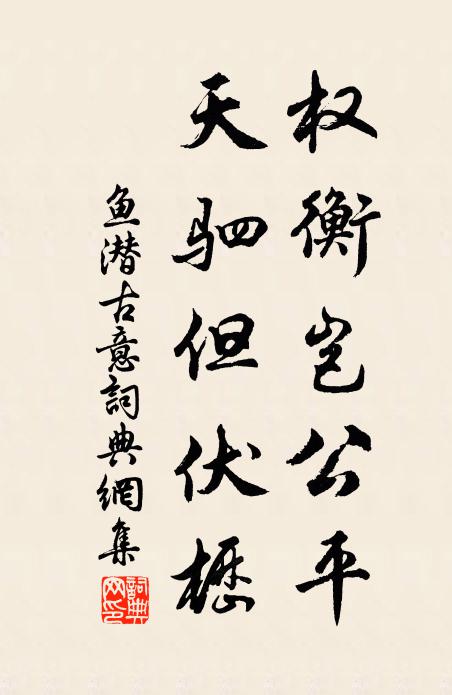 权衡岂公平
天驷但伏枥
鱼潜古意詞典網集
詞典网印